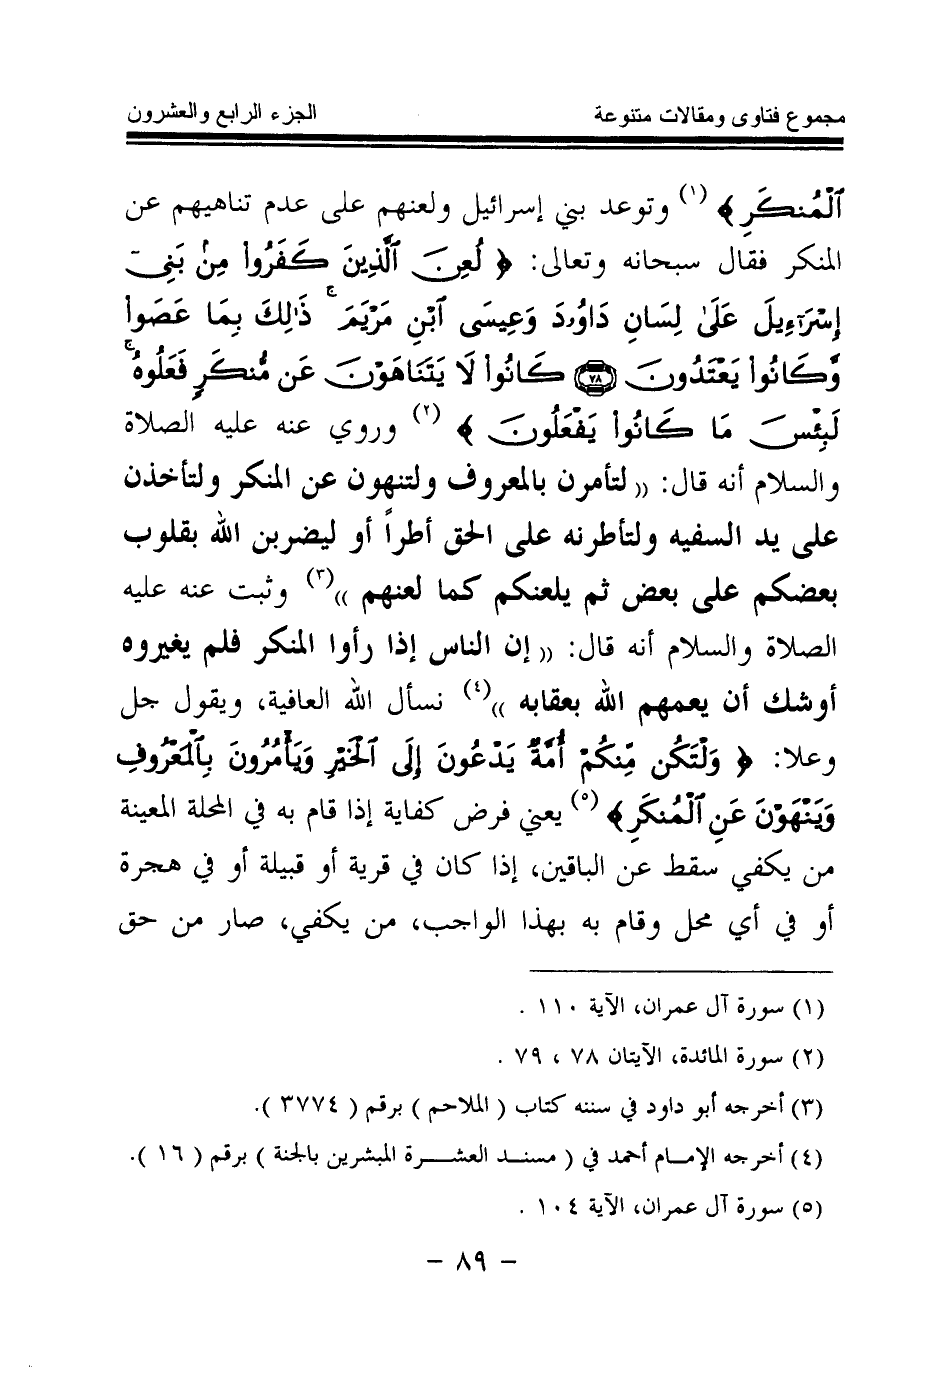 مجموع فتاوى ومقالات متنوعة الجزء الرابع والعشرون
ٱلْمُنكَرِ ﴾ (١) وتوعد بني إسرائيل ولعنهم على عدم تناهيهم عن
المنكر فقال سبحانه وتعالى: ﴿ لُعِنَ ٱلَّذِينَ كَفَرُوا۟ مِنۢ بَنِىٓ
إِسْرَٰٓءِيلَ عَلَىٰ لِسَانِ دَاوُۥدَ وَعِيسَى ٱبْنِ مَرْيَمَ ۚ ذَٰلِكَ بِمَا عَصَوا۟
وَّكَانُوا۟ يَعْتَدُونَ ﴿٧٨﴾ كَانُوا۟ لَا يَتَنَاهَوْنَ عَن مُّنكَرٍ فَعَلُوهُ ۚ
لَبِئْسَ مَا كَانُوا۟ يَفْعَلُونَ ﴾ (٢) وروي عنه عليه الصلاة
والسلام أنه قال: (( لتأمرن بالمعروف ولتنهون عن المنكر ولتأخذن
على يد السفيه ولتأطرنه على الحق أطراً أو ليضربن الله بقلوب
بعضكم على بعض ثم يلعنكم كما لعنهم ))(٣) وثبت عنه عليه
الصلاة والسلام أنه قال: (( إن الناس إذا رأوا المنكر فلم يغيروه
أوشك أن يعمهم الله بعقابه ))(٤) نسأل الله العافية، ويقول جل
وعلا: ﴿ وَلْتَكُن مِّنكُمْ أُمَّةٌ يَدْعُونَ إِلَى ٱلْخَيْرِ وَيَأْمُرُونَ بِٱلْمَعْرُوفِ
وَيَنْهَوْنَ عَنِ ٱلْمُنكَرِ ﴾ (٥) يعني فرض كفاية إذا قام به في المحلة المعينة
من يكفي سقط عن الباقين، إذا كان في قرية أو قبيلة أو في هجرة
أو في أي محل وقام به بهذا الواجب، من يكفي، صار من حق
(١) سورة آل عمران، الآية ١١٠ .
(٢) سورة المائدة، الآيتان ٧٨ ، ٧٩ .
(٣) أخرجه أبو داود في سننه كتاب ( الملاحم ) برقم ( ٣٧٧٤ ).
(٤) أخرجه الإمام أحمد في ( مسند العشرة المبشرين بالجنة ) برقم ( ١٦ ).
(٥) سورة آل عمران، الآية ١٠٤ .
- ٨٩ -